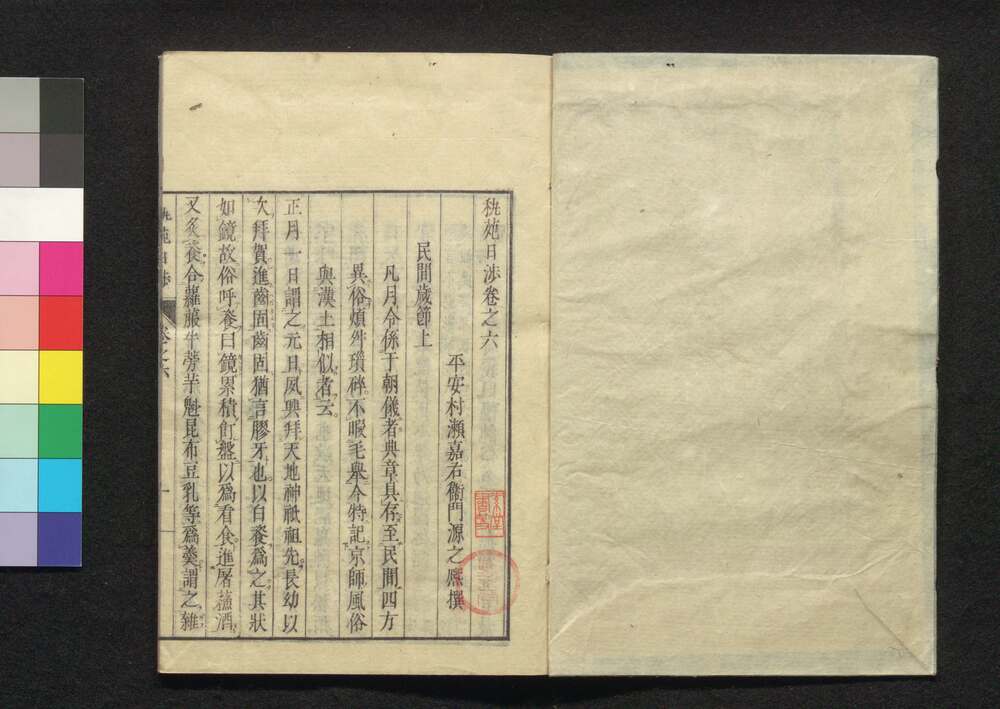 秇苑日渉卷之六
平安村瀬嘉右衞門源之熈撰
民間歳節上
凡月令係于朝儀者典章具存至民間四方
異俗煩舛瑣碎不暇毛舉今特記京師風俗
與漢土相似者云
正月一日謂之元日夙興拜天地神祇祖先長幼以
次拜賀進齒固齒固猶言膠牙也以白餈爲之其狀
如鏡故俗呼餈曰鏡累積飣盤以爲看食進屠蘓酒
又炙餈合蘿蔔牛蒡芋魁昆布豆乳等爲羹謂之雜
秇苑日渉
卷之六
一